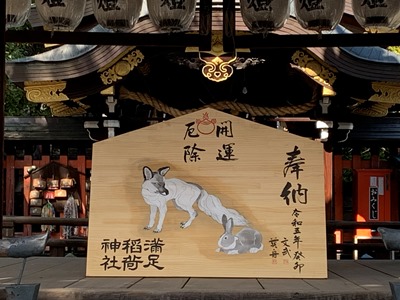 奉納
令和五年癸卯
開運
厄除
満足
稲荷
神社
おみくじ